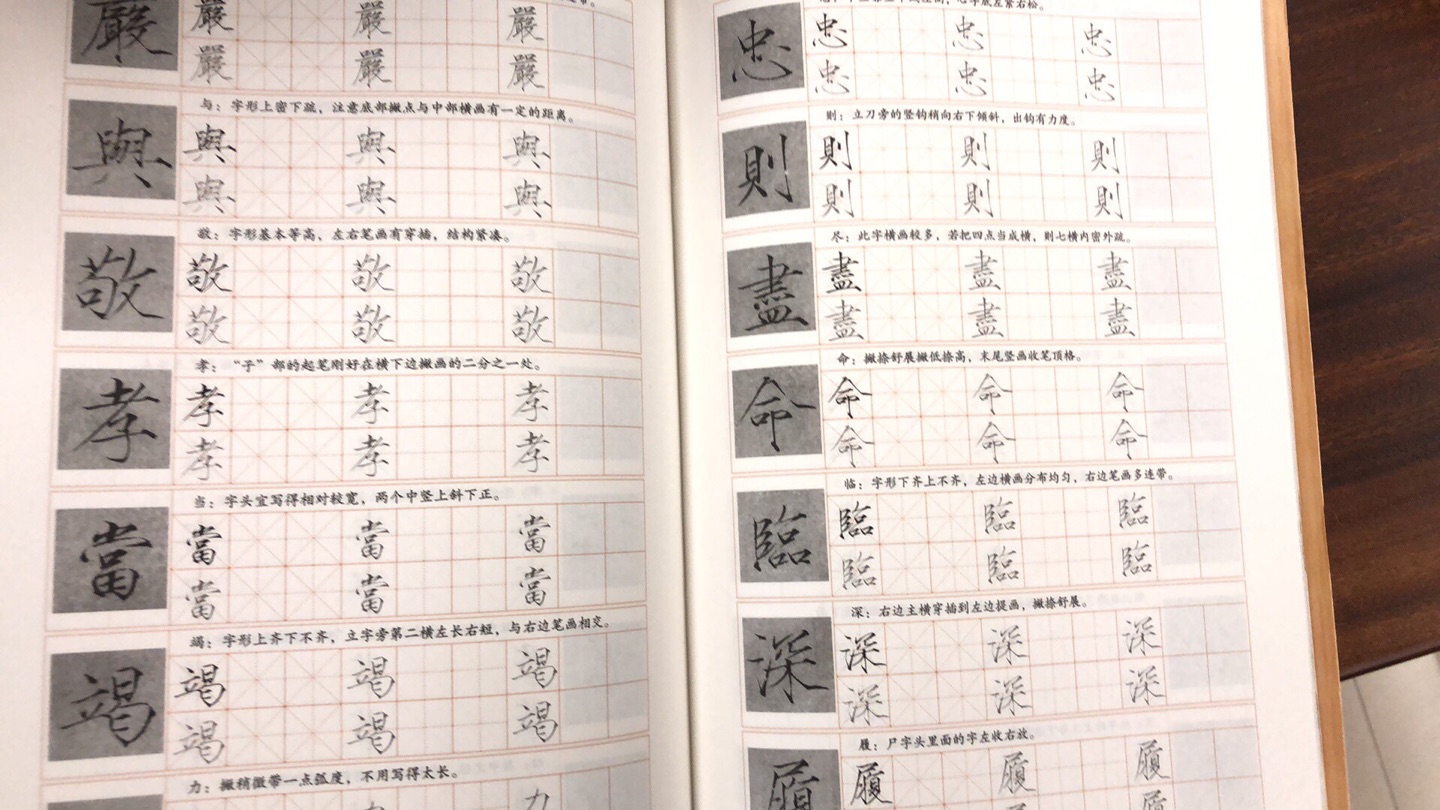 嚴
嚴 嚴 嚴
嚴 嚴 嚴
与：字形上密下疏，注意底部撇点与中部横画有一定的距离。
與
與 與 與
與 與 與
敬：字形基本等高，左右笔画有穿插，结构紧凑。
敬
敬 敬 敬
敬 敬 敬
孝：“子”部的起笔刚好在横下边撇画的二分之一处。
孝
孝 孝 孝
孝 孝 孝
当：字头宜写得相对较宽，两个中竖上斜下正。
當
當 當 當
當 當 當
竭：字形上齐下不齐，立字旁第二横左长右短，与右边笔画相交。
竭
竭 竭 竭
竭 竭 竭
力：撇稍微带一点弧度，不用写得太长。
力
心字底左紧右松。
忠
忠 忠 忠
忠 忠 忠
则：立刀旁的竖钩稍向右下倾斜，出钩有力度。
則
則 則 則
則 則 則
尽：此字横画较多，若把四点当成横，则七横内密外疏。
盡
盡 盡 盡
盡 盡 盡
命：撇捺舒展撇低捺高，末尾竖画收笔顶格。
命
命 命 命
命 命 命
临：字形下齐上不齐，左边横画分布均匀，右边笔画多连带。
臨
臨 臨 臨
臨 臨 臨
深：右边主横穿插到左边提画，撇捺舒展。
深
深 深 深
深 深 深
履：尸字头里面的字左收右放。
履
履 履 履